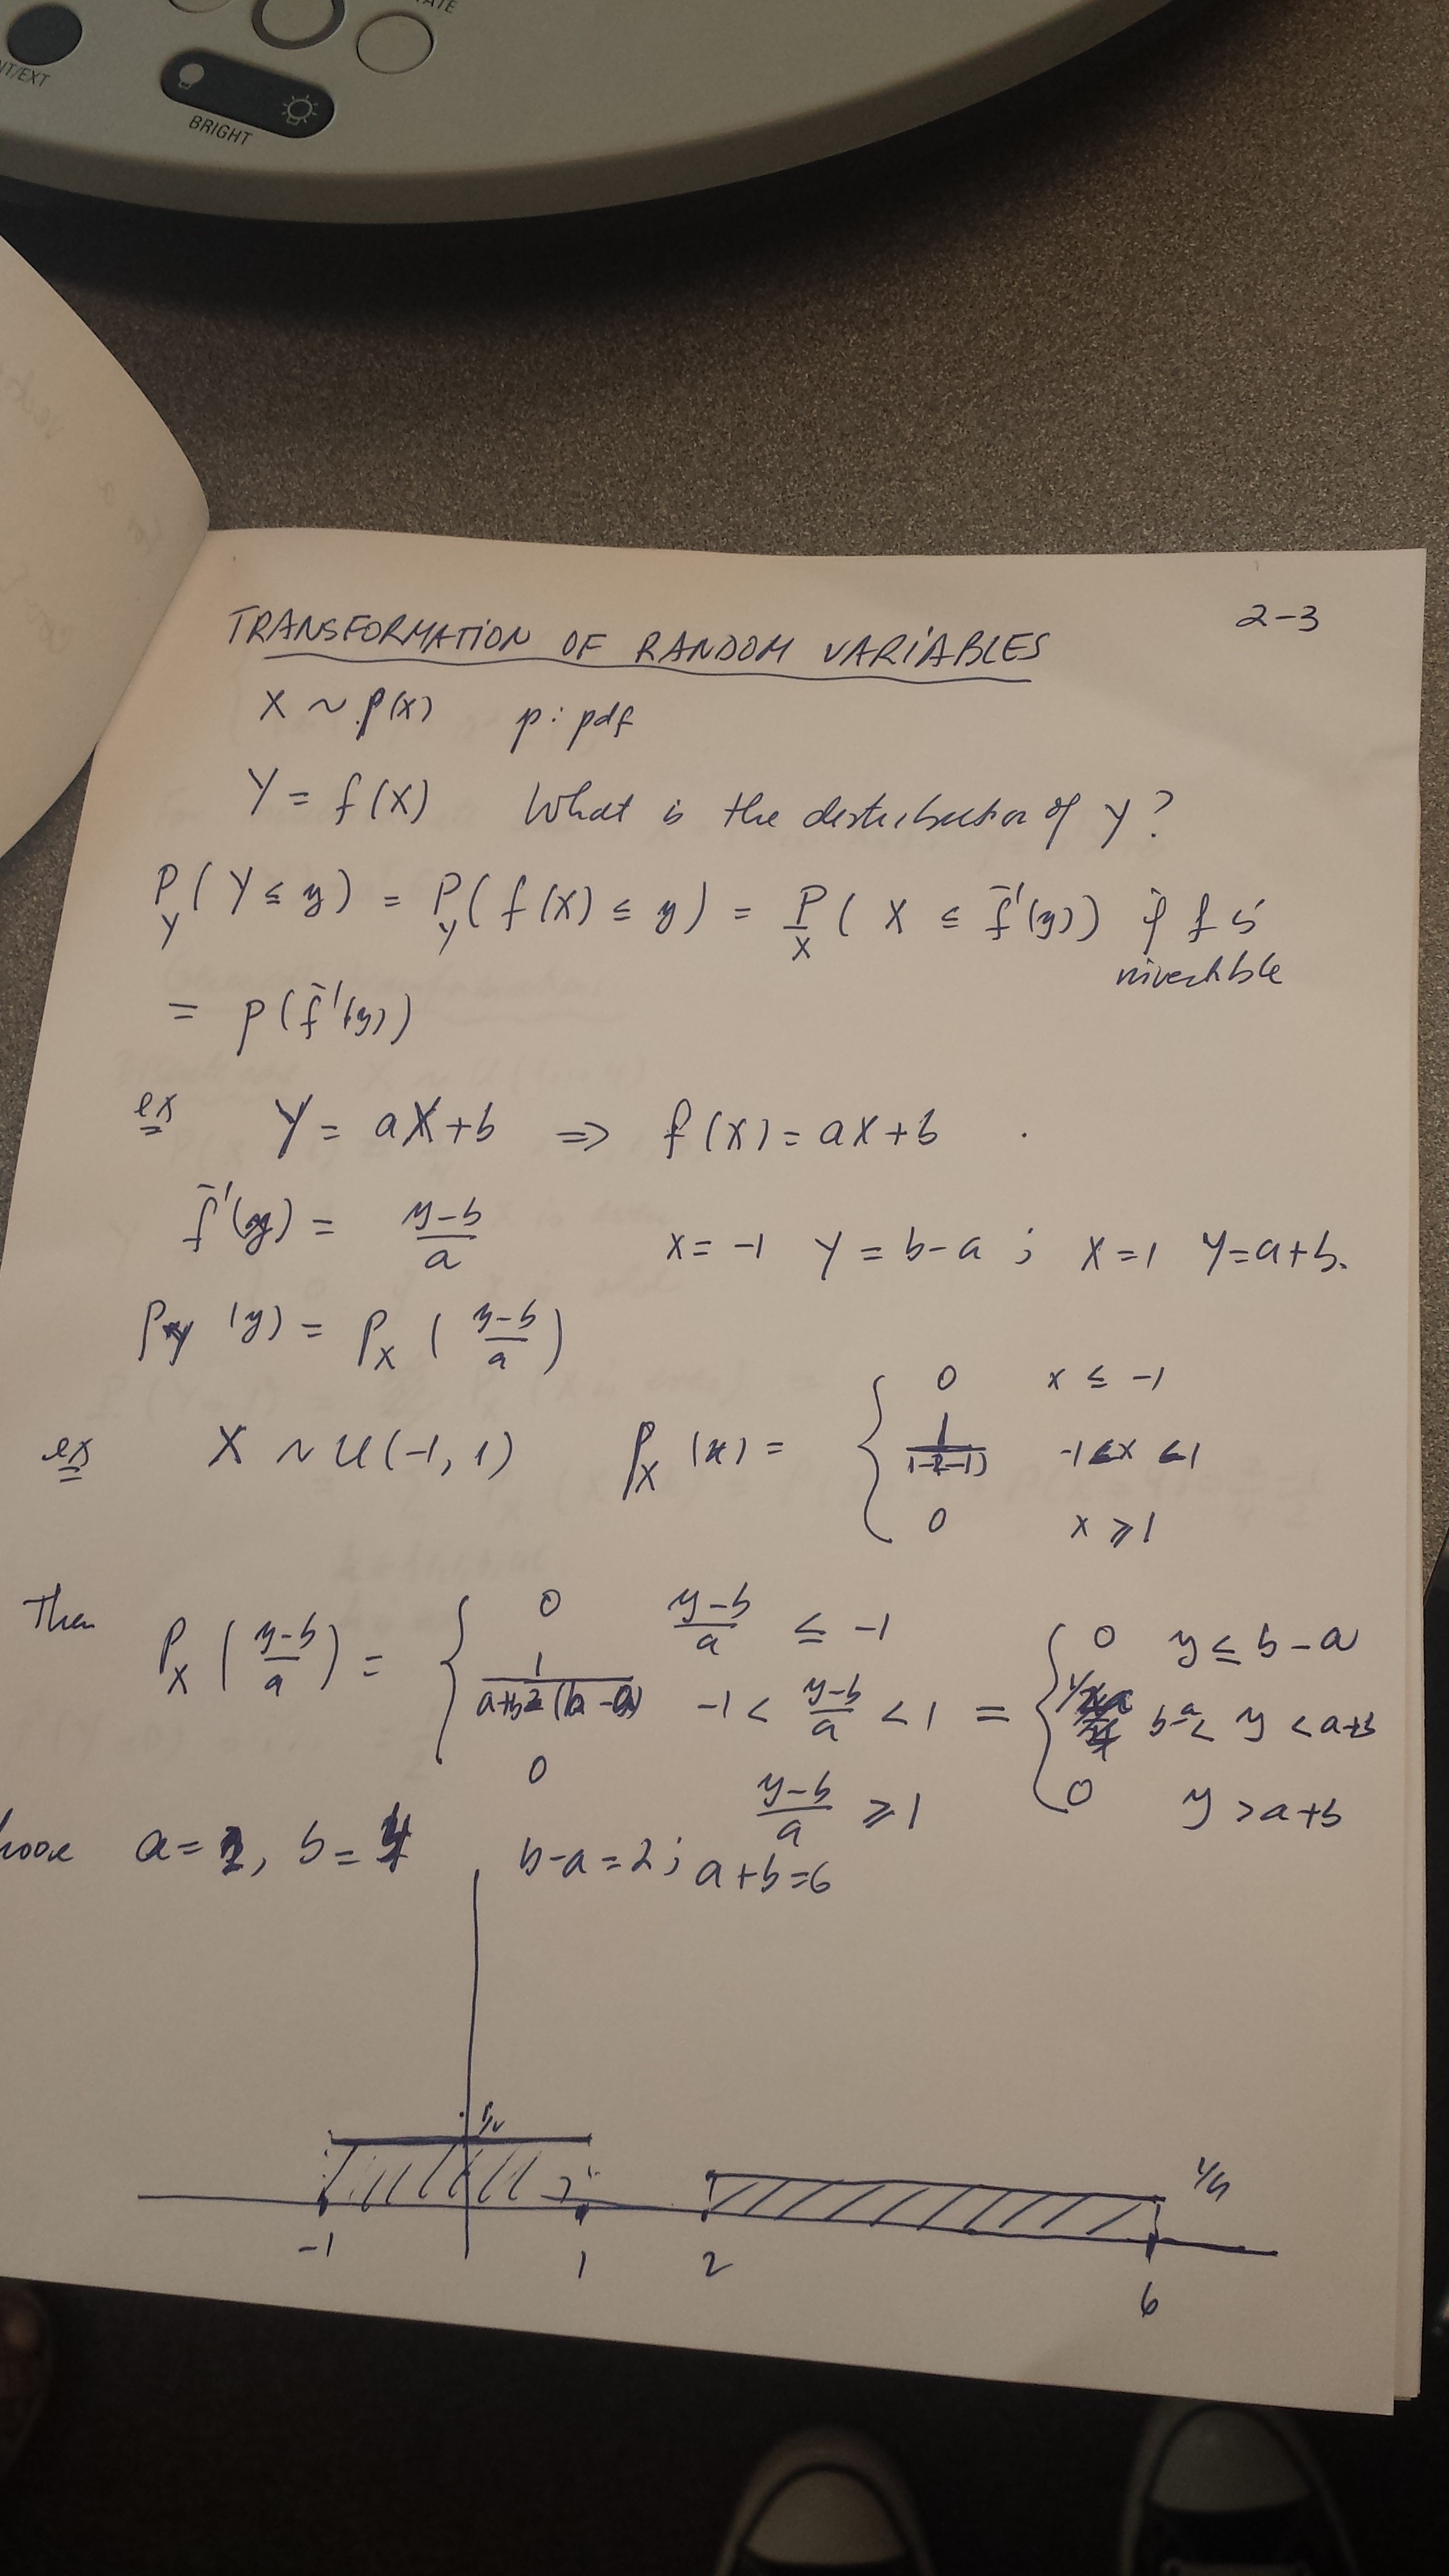 BRIGHT
2-3
TRANSFORMATION OF RANDOM VARIABLES
X ~ p(x) p: pdf
Y = f(X) What is the distribution of Y?
P_Y(Y ≤ y) = P_Y(f(X) ≤ y) = P_X(X ≤ f⁻¹(y)) if f is
invertible
= p(f⁻¹(y))
ex Y = aX+b ⇒ f(x) = ax+b
f⁻¹(y) = (y-b)/a x = -1 Y = b-a ; X=1 Y=a+b.
p_Y(y) = p_X((y-b)/a)
ex X ~ U(-1, 1) p_X(x) = { 0 x ≤ -1
1/(1-(-1)) -1<x<1
0 x ≥ 1
Then p_X((y-b)/a) = { 0 (y-b)/a ≤ -1 = { 0 y ≤ b-a
-1 < (y-b)/a < 1 b-a < y < a+b
0 (y-b)/a ≥ 1 0 y > a+b
a = 2, b = 4 b-a=2; a+b=6
1/4
-1 1 2 6